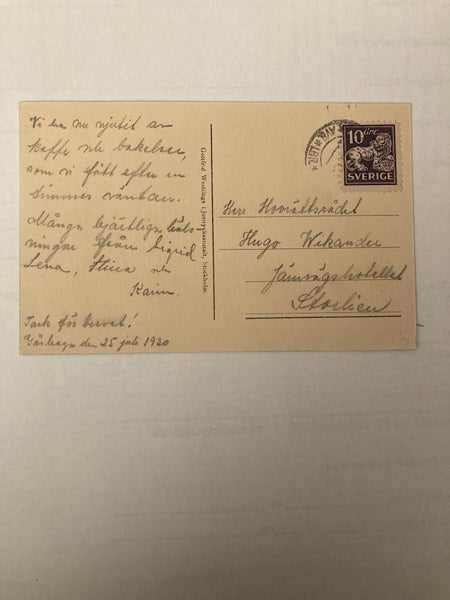 Vi ha nu njutit av
kaffe och bakelser,
som vi fått efter en
timmes väntan.
Många hjärtliga häls-
ningar från Sigrid
Lena, Stina och
Karin.
Tack för brevet!
den 25 juli 1930
Gustf-d Westlings Ljustrycksanstalt, Stockholm.
10 ÖRE
SVERIGE
Herr Hovrättsrådet
Hugo Wikander
Järnvägshotellet
Storlien